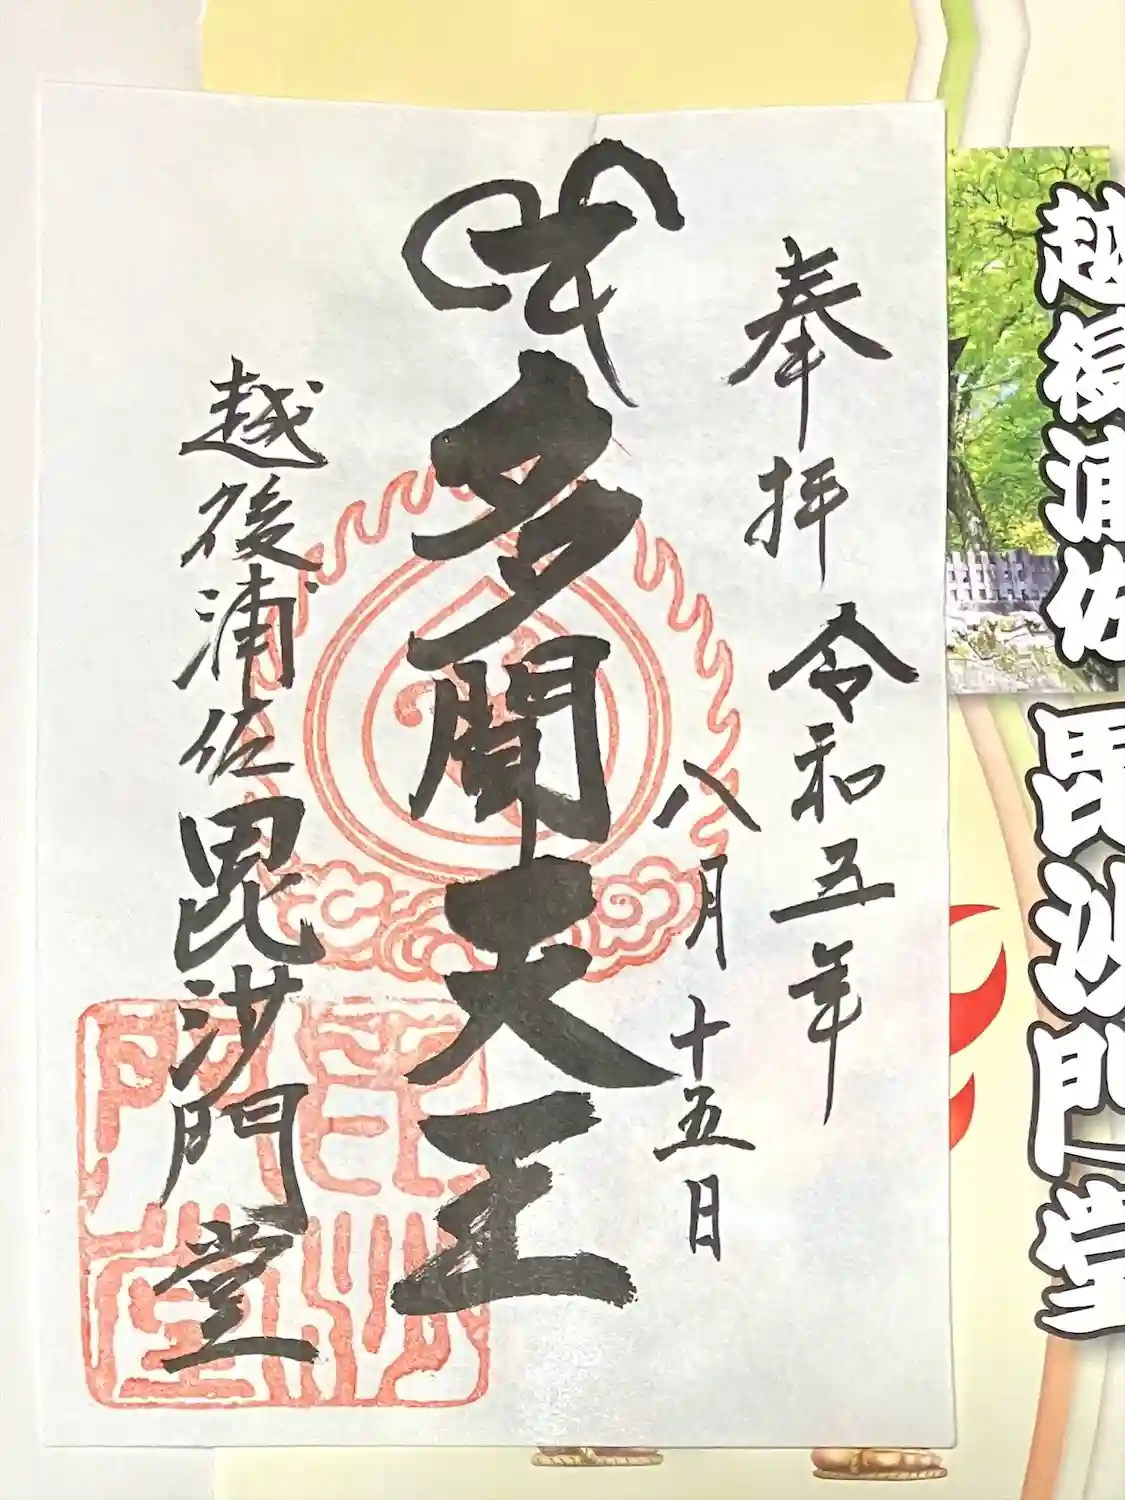 奉拝 令和五年
八月十五日
多聞天王
越後浦佐毘沙門堂
毘沙門堂
越後浦佐 毘沙門堂